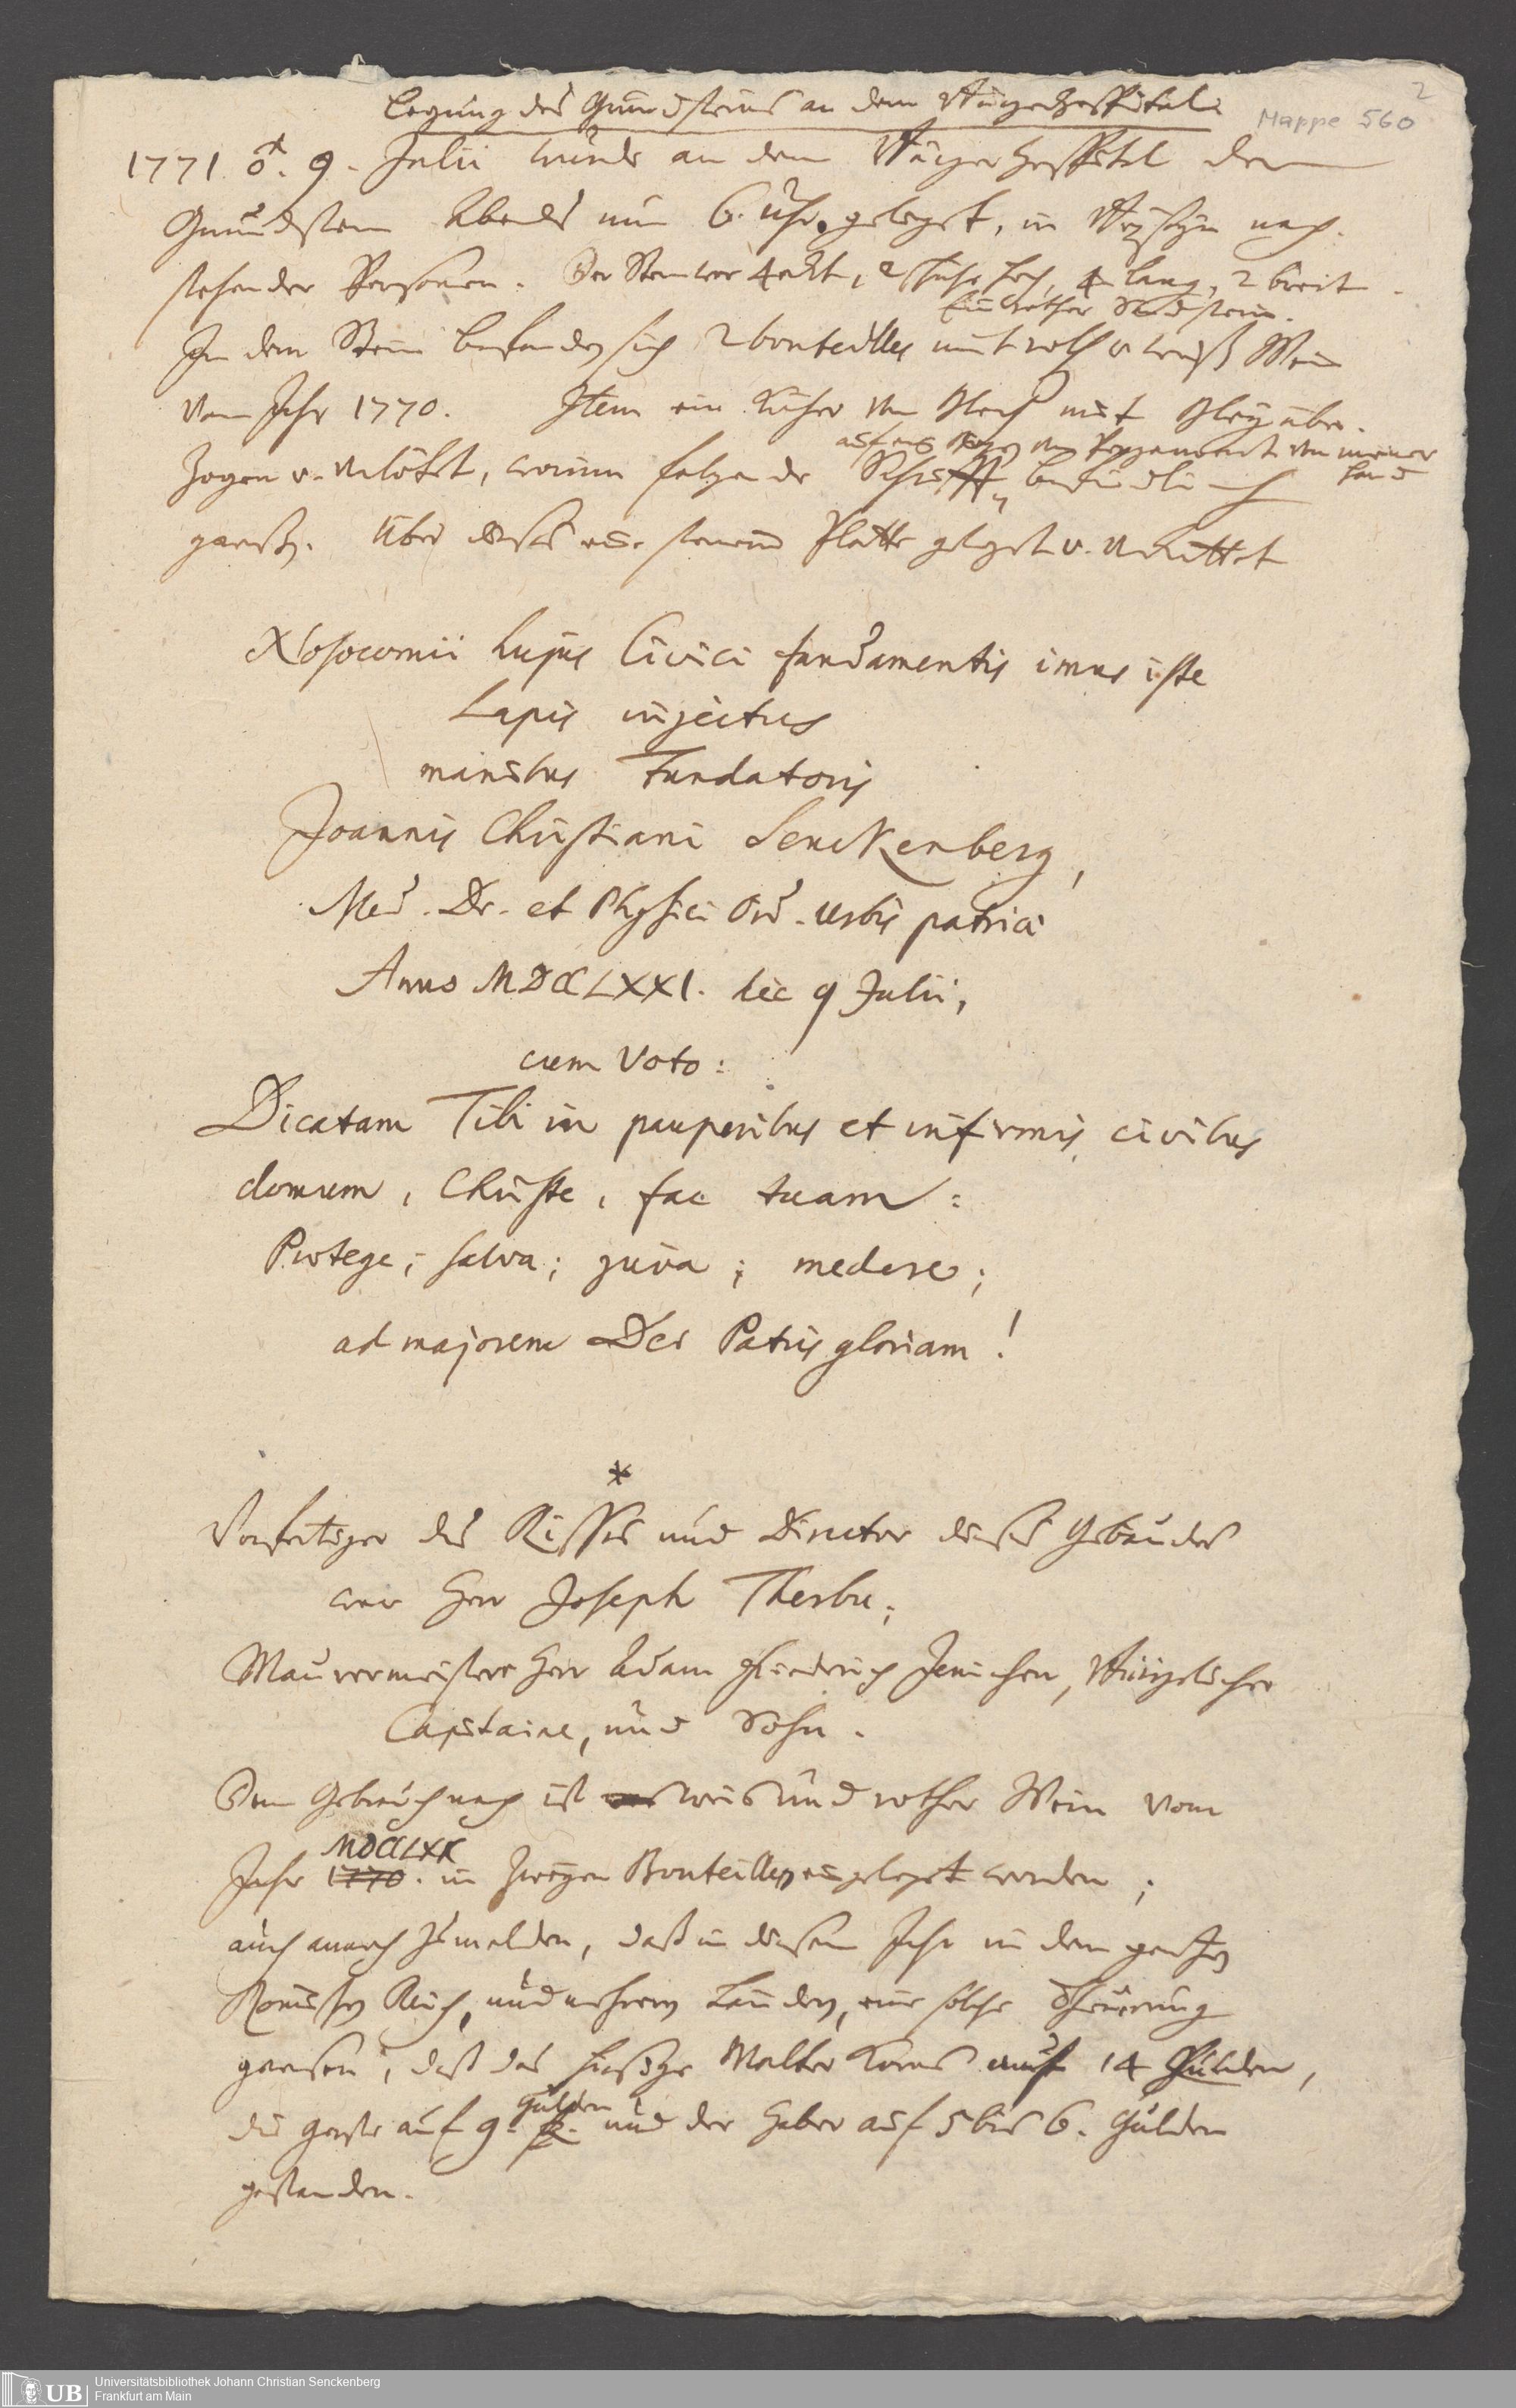 Legung des Grundsteins an dem Bürgerhospital.
Mappe 560
2
1771 ♂. 9. Julii wurde an dem Bürgerhospital der
Grundstein Abends um 6. Uhr geleget, in Beyseyn nach-
stehender Personen. Der Stein war 4eckt, 2 Schuhe hoch, 4 lang, 2 breit
Ein rother Sandstein.
In dem Stein befanden sich 2 bouteilles mit roth u weiß Wein
vom Jahr 1770. Item ein von Blech mit Bley über-
auf von Pergament von meiner
Hand
zogen u. verlöthet, worinn folgende Schrifft befindlich
gewesen. Über dieses steinern Platte geleget u. verkittet
Nosocomii hujus Civici fundamentis imus iste
Lapis injectus
manibus Fundatoris
Joannis Christiani Senckenberg,
Med. Dr. et Physici Ord. urbis patriae
Anno MDCCLXXI. die 9 Julii,
cum Voto:
Dicatam Tibi in pauperibus et infirmis civibus
domum, Christe, fac tuam:
Protege; salva; juva; medere;
ad majorem Dei Patris gloriam!
*
Verfertiger des Risses und Director dieses Gebäudes
war Herr Joseph Therbu;
Maurermeister Herr Adam Friederich Jenichen, Bürgerlicher
Capitaine, und Sohn.
Dem Gebrauch nach ist weis und rother Wein vom
MDCCLXX
Jahr 1770. in zweyen Bouteillen eingeleget worden;
auch annoch zu melden, daß in diesem Jahr in dem gantzen
Römischen Reich, und mehrern Landen, eine solche Theuerung
gewesen, daß das hiesige Malter Korns auf 14 Gulden,
Gulden
die Gerste auf 9. und der Haber auf 5 bis 6. Gulden
gestanden.
UB
Universitätsbibliothek Johann Christian Senckenberg
Frankfurt am Main